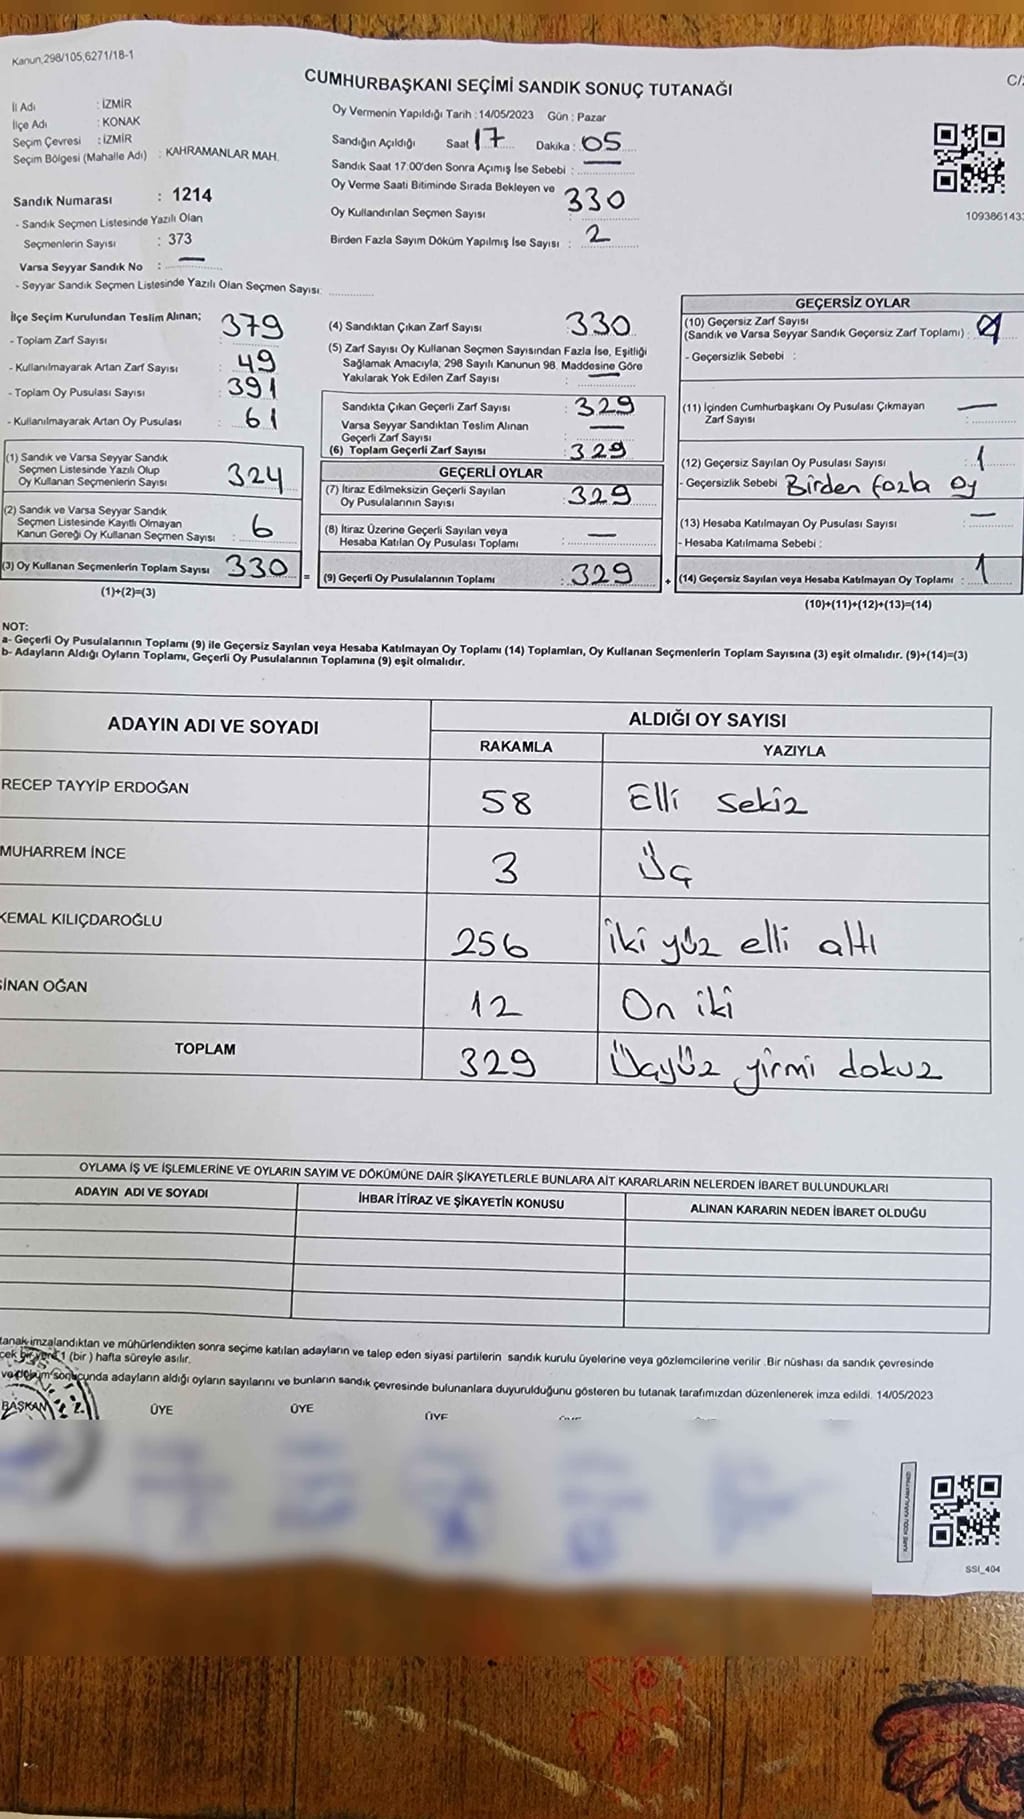 Kanun,298/105,6271/18-1
CUMHURBAŞKANI SEÇİMİ SANDIK SONUÇ TUTANAĞI
İl Adı : İZMİR
İlçe Adı : KONAK
Seçim Çevresi : İZMİR
Seçim Bölgesi (Mahalle Adı) : KAHRAMANLAR MAH.
Sandık Numarası : 1214
- Sandık Seçmen Listesinde Yazılı Olan
Seçmenlerin Sayısı : 373
Varsa Seyyar Sandık No : —
- Seyyar Sandık Seçmen Listesinde Yazılı Olan Seçmen Sayısı:
Oy Vermenin Yapıldığı Tarih : 14/05/2023 Gün : Pazar
Sandığın Açıldığı Saat 17 Dakika : 05
Sandık Saat 17.00'den Sonra Açımış İse Sebebi : —
Oy Verme Saati Bitiminde Sırada Bekleyen ve
Oy Kullandırılan Seçmen Sayısı : 330
Birden Fazla Sayım Döküm Yapılmış İse Sayısı : 2
109386143
İlçe Seçim Kurulundan Teslim Alınan;
- Toplam Zarf Sayısı : 379
- Kullanılmayarak Artan Zarf Sayısı : 49
- Toplam Oy Pusulası Sayısı : 391
- Kullanılmayarak Artan Oy Pusulası : 61
(1) Sandık ve Varsa Seyyar Sandık
Seçmen Listesinde Yazılı Olup
Oy Kullanan Seçmenlerin Sayısı : 324
(2) Sandık ve Varsa Seyyar Sandık
Seçmen Listesinde Kayıtlı Olmayan
Kanun Gereği Oy Kullanan Seçmen Sayısı : 6
(3) Oy Kullanan Seçmenlerin Toplam Sayısı 330
(1)+(2)=(3)
(4) Sandıktan Çıkan Zarf Sayısı : 330
(5) Zarf Sayısı Oy Kullanan Seçmen Sayısından Fazla İse, Eşitliği
Sağlamak Amacıyla, 298 Sayılı Kanunun 98. Maddesine Göre
Yakılarak Yok Edilen Zarf Sayısı : —
Sandıkta Çıkan Geçerli Zarf Sayısı : 329
Varsa Seyyar Sandıktan Teslim Alınan
Geçerli Zarf Sayısı : —
(6) Toplam Geçerli Zarf Sayısı : 329
GEÇERLİ OYLAR
(7) İtiraz Edilmeksizin Geçerli Sayılan
Oy Pusulalarının Sayısı : 329
(8) İtiraz Üzerine Geçerli Sayılan veya
Hesaba Katılan Oy Pusulası Toplamı : —
= (9) Geçerli Oy Pusulalarının Toplamı : 329
GEÇERSİZ OYLAR
(10) Geçersiz Zarf Sayısı
(Sandık ve Varsa Seyyar Sandık Geçersiz Zarf Toplamı) :
- Geçersizlik Sebebi :
(11) İçinden Cumhurbaşkanı Oy Pusulası Çıkmayan
Zarf Sayısı : —
(12) Geçersiz Sayılan Oy Pusulası Sayısı : 1
- Geçersizlik Sebebi Birden fazla oy
(13) Hesaba Katılmayan Oy Pusulası Sayısı : —
- Hesaba Katılmama Sebebi :
+ (14) Geçersiz Sayılan veya Hesaba Katılmayan Oy Toplamı : 1
(10)+(11)+(12)+(13)=(14)
NOT:
a- Geçerli Oy Pusulalarının Toplamı (9) ile Geçersiz Sayılan veya Hesaba Katılmayan Oy Toplamı (14) Toplamları, Oy Kullanan Seçmenlerin Toplam Sayısına (3) eşit olmalıdır. (9)+(14)=(3)
b- Adayların Aldığı Oyların Toplamı, Geçerli Oy Pusulalarının Toplamına (9) eşit olmalıdır.
ADAYIN ADI VE SOYADI ALDIĞI OY SAYISI
RAKAMLA YAZIYLA
RECEP TAYYİP ERDOĞAN 58 Elli sekiz
MUHARREM İNCE 3 Üç
KEMAL KILIÇDAROĞLU 256 iki yüz elli altı
SİNAN OĞAN 12 On iki
TOPLAM 329 Üçyüz yirmi dokuz
OYLAMA İŞ VE İŞLEMLERİNE VE OYLARIN SAYIM VE DÖKÜMÜNE DAİR ŞİKAYETLERLE BUNLARA AİT KARARLARIN NELERDEN İBARET BULUNDUKLARI
ADAYIN ADI VE SOYADI İHBAR İTİRAZ VE ŞİKAYETİN KONUSU ALINAN KARARIN NEDEN İBARET OLDUĞU
tanak imzalandıktan ve mühürlendikten sonra seçime katılan adayların ve talep eden siyasi partilerin sandık kurulu üyelerine veya gözlemcilerine verilir .Bir nüshası da sandık çevresinde
bir yere 1 (bir ) hafta süreyle asılır.
ve döküm sonucunda adayların aldığı oyların sayılarını ve bunların sandık çevresinde bulunanlara duyurulduğunu gösteren bu tutanak tarafımızdan düzenlenerek imza edildi. 14/05/2023
BAŞKAN ÜYE ÜYE ÜYE
KARE KODU KARALAMAYINIZ!
SSI_404